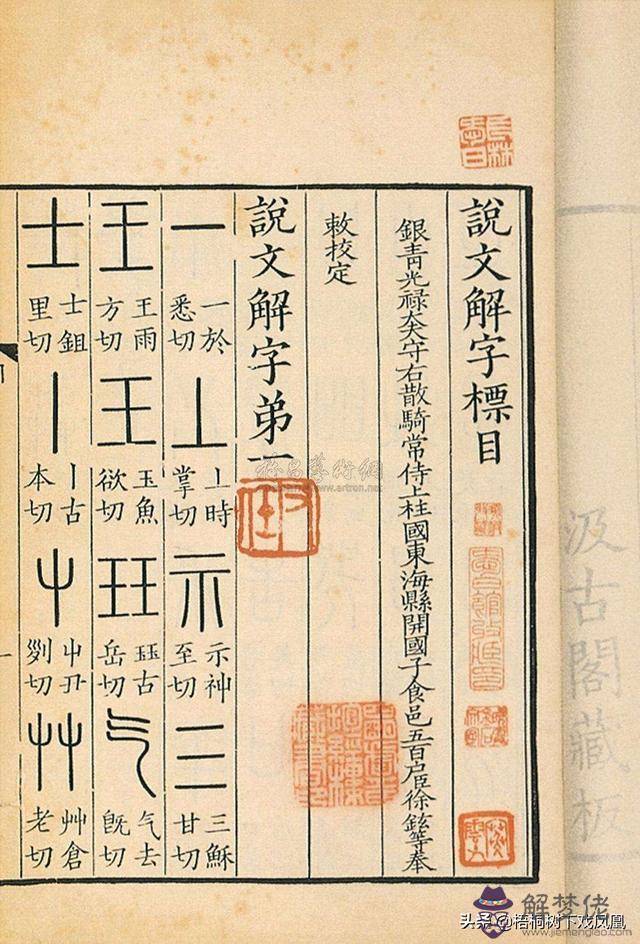 汲古閣藏板
說文解字標目
銀青光祿大夫守右散騎常侍上柱國東海縣開國子食邑五百户臣徐鉉等奉
敕校定
說文解字弟一
一 一於悉切 丄 丄時掌切 示 示神至切 三 三穌甘切
王 王雨方切 玉 玉魚欲切 玨 玨古岳切 气 气去既切
士 士鉏里切 丨 丨古本切 屮 屮丑列切 艸 艸倉老切
www.artron.net
解梦佬
www.jiemenglao.com
头条@梧桐树下戏凤凰